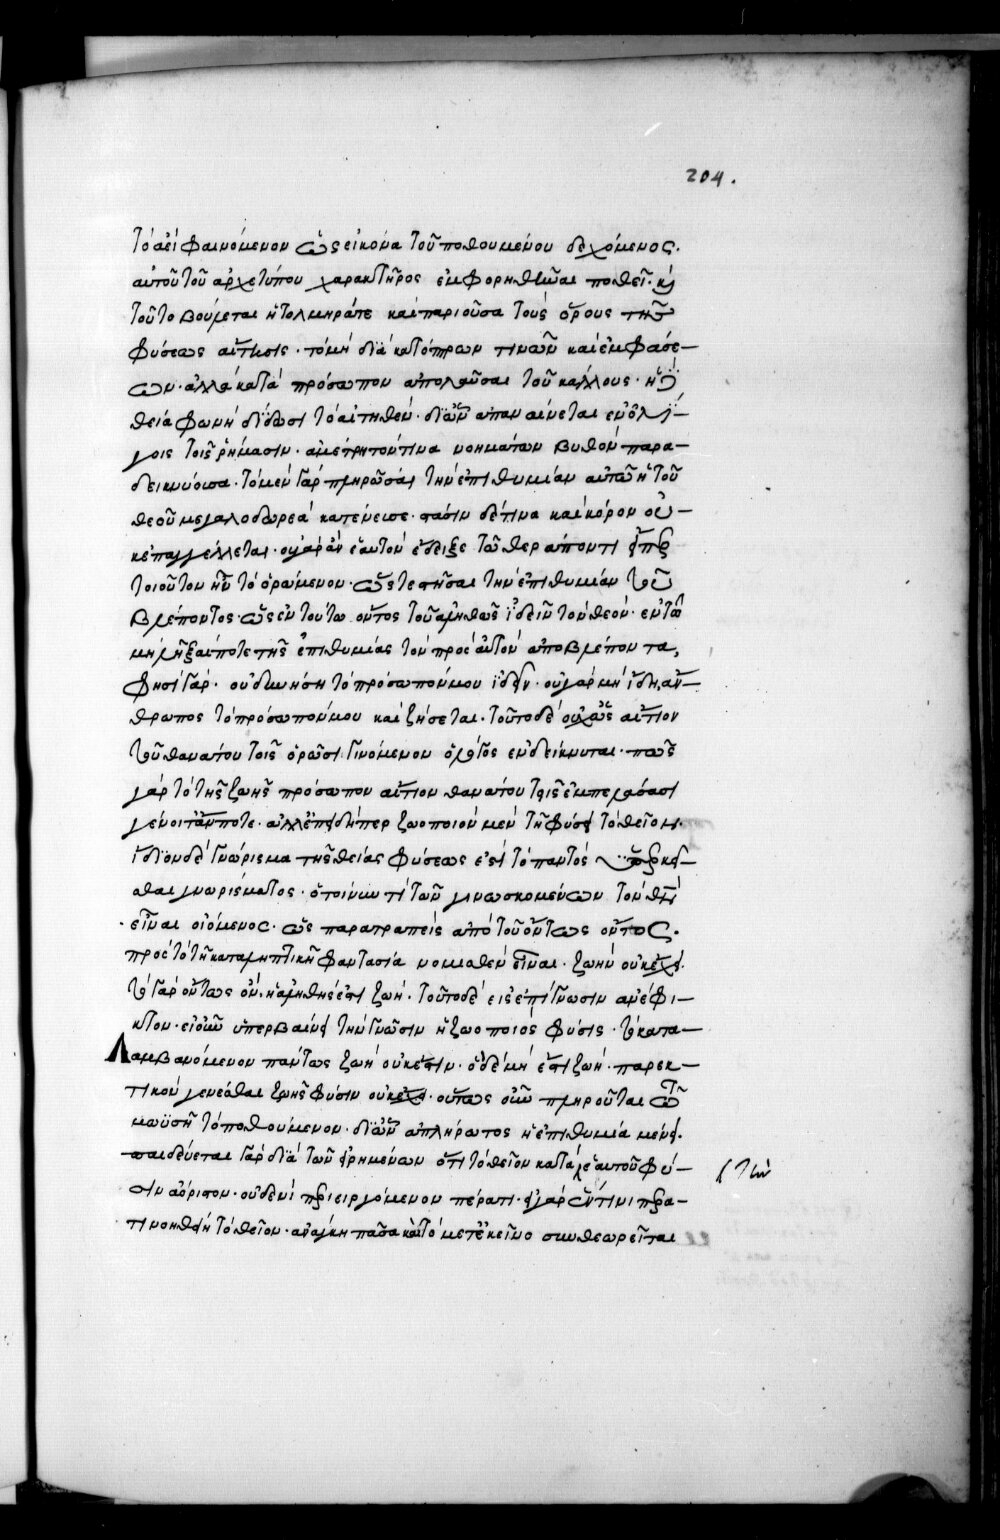 204.
τὸ ἀεὶ φαινόμενον ὡς εἰκόνα τοῦ ποθουμένου δεχόμενος.
αὐτοῦ τοῦ ἀρχετύπου χαρακτῆρος ἐμφορηθῆναι ποθεῖ. καὶ
τοῦτο βούλεται ἡ τολμηρά τε καὶ παριοῦσα τοὺς ὅρους τῆς
φύσεως αἴτησις. τὸ μὴ διὰ κατόπτρων τινῶν καὶ ἐμφάσε—
ων. ἀλλὰ κατὰ πρόσωπον ἀπολαῦσαι τοῦ κάλλους. ἡ δὲ
θεία φωνὴ δίδωσι τὸ αἰτηθὲν. δι' ὧν ἀπαναίνεται ἐν ὀλί—
γοις τοῖς ῥήμασιν. ἀμέτρητόν τινα νοημάτων βυθὸν παρα—
δεικνύουσα. τὸ μὲν γὰρ πληρῶσαι τὴν ἐπιθυμίαν αὐτῶ ἡ τοῦ
θεοῦ μεγαλοδωρεὰ κατένευσε. στάσιν δέ τινα καὶ κόρον οὐ—
κ ἐπαγγέλλεται. οὐ γὰρ ἂν ἑαυτὸν ἔδειξε τῶ θεράποντι εἴπερ
τοιοῦτον ἦν τὸ ὁρώμενον. ὥστε στῆσαι τὴν ἐπιθυμίαν τοῦ
βλέποντος. ὡς ἐν τούτω ὄντος τοῦ ἀληθῶς ἰδεῖν τὸν θεόν. ἐν τῶ
μὴ λῆξαί ποτε τῆς ἐπιθυμίας τὸν πρὸς αὐτὸν ἀποβλέποντα,
φησὶ γάρ. οὐ δυνήση τὸ πρόσωπόν μου ἰδεῖν. οὐ γὰρ μὴ ἴδη ἄν—
θρωπος τὸ πρόσωπόν μου καὶ ζήσεται. τοῦτο δὲ οὐχ ὡς αἴτιον
τοῦ θανάτου τοῖς ὁρῶσι γινόμενον ὁ λόγος ἐνδείκνυται. πῶς
γὰρ τὸ τῆς ζωῆς πρόσωπον αἴτιον θανάτου τοῖς ἐμπελάσασι
γένοιτ' ἄν ποτε. ἀλλ' ἐπειδήπερ ζωοποιὸν μὲν τῆ φύσει τὸ θεῖον.
ἴδιον δὲ γνώρισμα τῆς θείας φύσεως ἐστὶ τὸ παντὸς ὑπερκεῖ—
σθαι γνωρίσματος. ὁ τοίνυν τὶ τῶν γινωσκομένων τὸν θν
εἶναι οἰόμενος. ὡς παρατραπεὶς ἀπὸ τοῦ ὄντως ὄντος.
πρὸς τὸ τῆ καταληπτικῆ φαντασία νομισθὲν εἶναι. ζωὴν οὐκ ἔχει.
τὸ γὰρ ὄντως ὂν. ἡ ἀληθής ἐστι ζωή. τοῦτο δὲ εἰς ἐπίγνωσιν ἀνέφι—
κτον. εἰ οὖν ὑπερβαίνει τὴν γνῶσιν ἡ ζωοποιὸς φύσις. τὸ κατα—
λαμβανόμενον πάντως ζωὴ οὐκ ἔστιν. ὃ δὲ μή ἐστι ζωὴ. παρεκ—
τικὸν γενέσθαι ζωῆς φύσιν οὐκ ἔχει. οὕτως οὖν πληροῦται τῶ
μωϋσῆ τὸ ποθούμενον. δι' ὧν ἀπλήρωτος ἡ ἐπιθυμία μένει.
παιδεύεται γὰρ διὰ τῶν εἰρημένων ὅτι τὸ θεῖον κατὰ ἑαυτοῦ φύ—
σιν ἀόριστον. οὐδενὶ περιειργόμενον πέρατι. εἰ γὰρ ἔν τινι πέρα—
τι νοηθείη τὸ θεῖον. ἀνάγκη πᾶσα καὶ τὸ μετ' ἐκεῖνο συνθεωρεῖται
τὴν